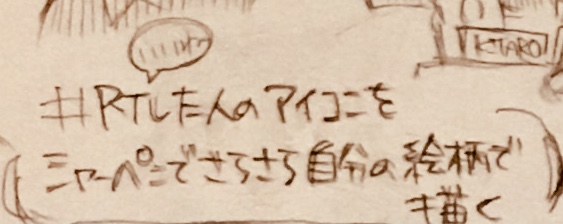 KITARO
#RTした人のアイコンを
シャーペンでさらさら自分の絵柄で
描く